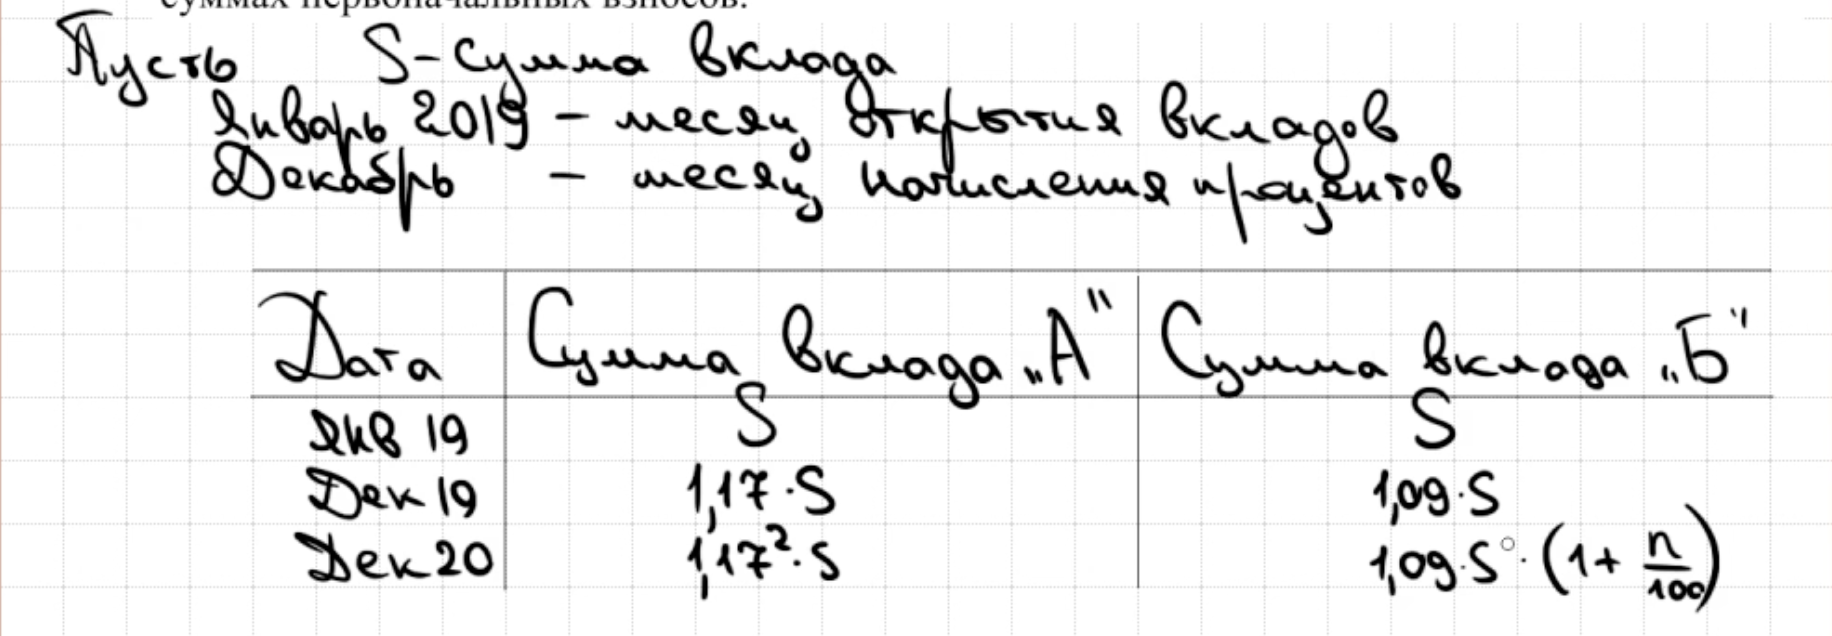 суммах первоначальных взносов.
Пусть S - сумма вклада
Январь 2019 - месяц открытия вкладов
Декабрь - месяц начисления процентов
Дата Сумма вклада „А" Сумма вклада „Б"
Янв 19 S S
Дек 19 1,17·S 1,09·S
Дек 20 1,17²·S 1,09·S·(1+n/100)